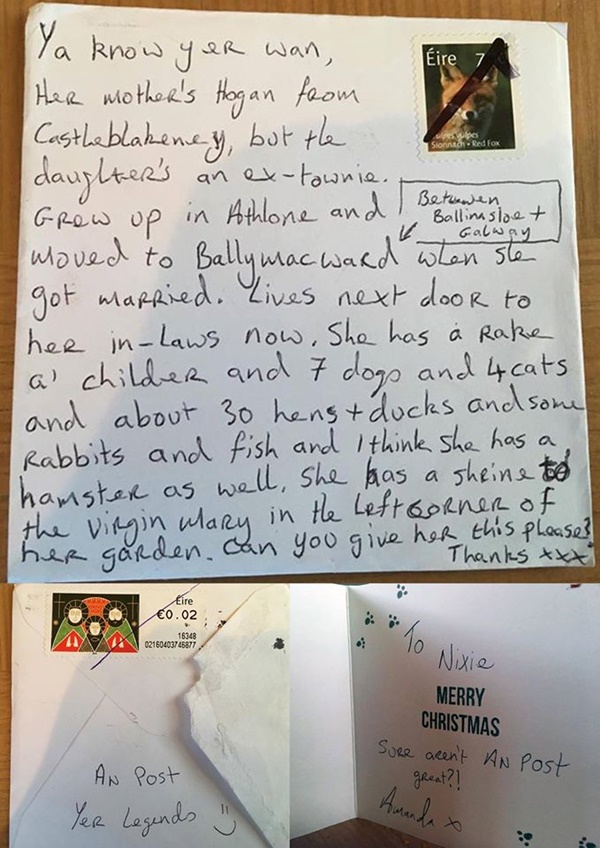 Ya know yer wan,
Her mother's Hogan from
Castleblakeney, but the
daughter's an ex-townie.
Grew up in Athlone and
moved to Ballymacward when she
got married. Lives next door to
her in-laws now. She has a rake
a' childer and 7 dogs and 4 cats
and about 30 hens + ducks and some
rabbits and fish and I think she has a
hamster as well. She has a shrine to
the Virgin Mary in the left corner of
her garden. Can you give her this please?
Thanks xxx
Between
Ballinasloe +
Galway
Éire 7
Vulpes vulpes
Sionnach • Red Fox
Éire
€0.02
16348
02160403746877
An Post
Yer Legends
To Nixie
MERRY
CHRISTMAS
Sure aren't An Post
great?!
Amanda x